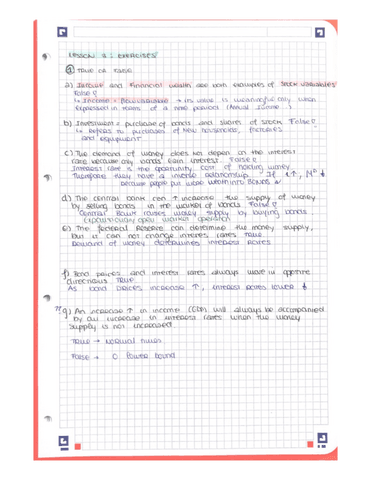 LESSON 3: EXERCISES
① TRUE OR FALSE
a) Income and Financial wealth are both examples of stock variables
False
↳ Income = flow variable → its value is meaningful only when
expressed in terms of a time period (Annual Income)
b) Investment = purchase of bonds and shares of stock False
↳ Refers to purchases of new households, factories
and equipment
c) The demand of money does not depend on the interest
rate because only bonds earn interest. False
Interest rate is the opportunity cost of holding money.
Therefore they have a inverse relationship. If i↑, Mᴰ↓
because people put more wealth into Bonds
d) The central bank can ↑ increase the supply of money
by selling bonds in the market of bonds False
Central Bank raises money supply by buying bonds
expansionary open market operation
e) The Federal Reserve can determine the money supply,
but it can not change interest rates TRUE
Demand of money determines interest rates
f) Bond prices and interest rates always move in opposite
directions True
As bond prices increase ↑, interest rates lower ↓
g) An increase ↑ in income (GDP) will always be accompanied
by an increase in interest rates when the money
supply is not increased
TRUE → Normal times
False → 0 Power bound